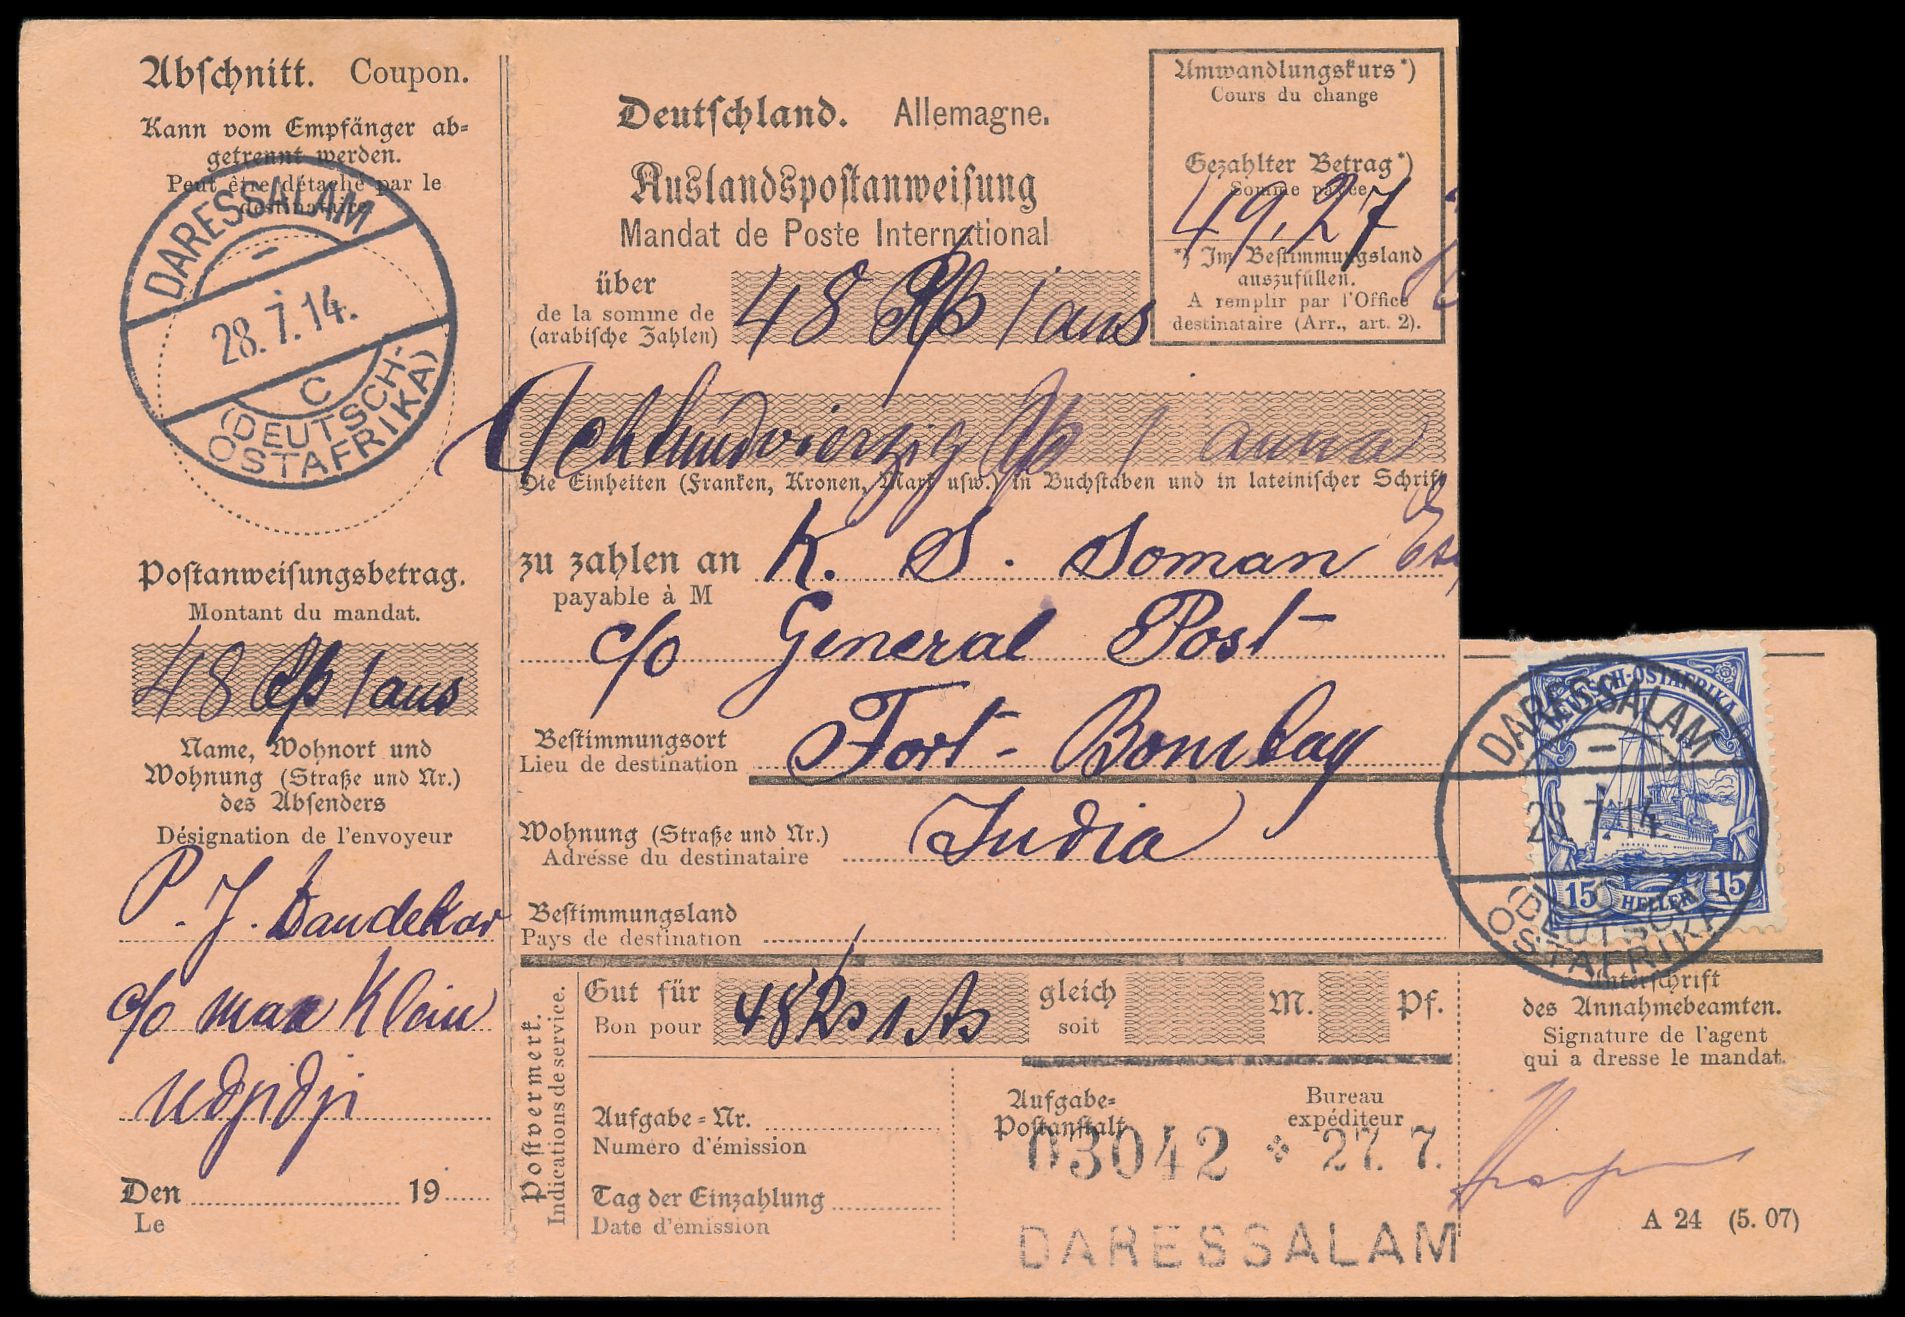 Abschnitt. Coupon.
Kann vom Empfänger ab=
getrennt werden.
Peut être détaché par le
destinataire
DARESSALAM
28.7.14.
C
(DEUTSCH-
OSTAFRIKA)
Postanweisungsbetrag.
Montant du mandat.
48 Rp 1 ans
Name, Wohnort und
Wohnung (Straße und Nr.)
des Absenders
Désignation de l'envoyeur
P. J. Dandekar
c/o max Klein
Udjidji
Den 19
Le
Deutschland. Allemagne.
Auslandspostanweisung
Mandat de Poste International
über
de la somme de
(arabische Zahlen)
48 Rp 1 ans
Umwandlungskurs*)
Cours du change
Gezahlter Betrag*)
Somme payée
49,27
*) Im Bestimmungsland
auszufüllen.
A remplir par l'Office
destinataire (Arr., art. 2).
Achtundvierzig Rp 1 anna
Die Einheiten (Franken, Kronen, Mark usw.) in Buchstaben und in lateinischer Schrift
zu zahlen an K. S. Soman Esq
payable à M
c/o General Post
Bestimmungsort Fort - Bombay
Lieu de destination
Wohnung (Straße und Nr.) India
Adresse du destinataire
Bestimmungsland
Pays de destination
DEUTSCH-OSTAFRIKA
15 HELLER 15
DARESSALAM
28.7.14.
(DEUTSCH-
OSTAFRIKA)
Postvermerk.
Indications de service.
Gut für 48 Rs 1 As gleich M. Pf.
Bon pour soit
Aufgabe=Nr.
Numéro d'émission
Tag der Einzahlung
Date d'émission
Aufgabe=
Postanstalt
Bureau
expéditeur
03042 27. 7.
DARESSALAM
Unterschrift
des Annahmebeamten.
Signature de l'agent
qui a dressé le mandat.
A 24 (5. 07)